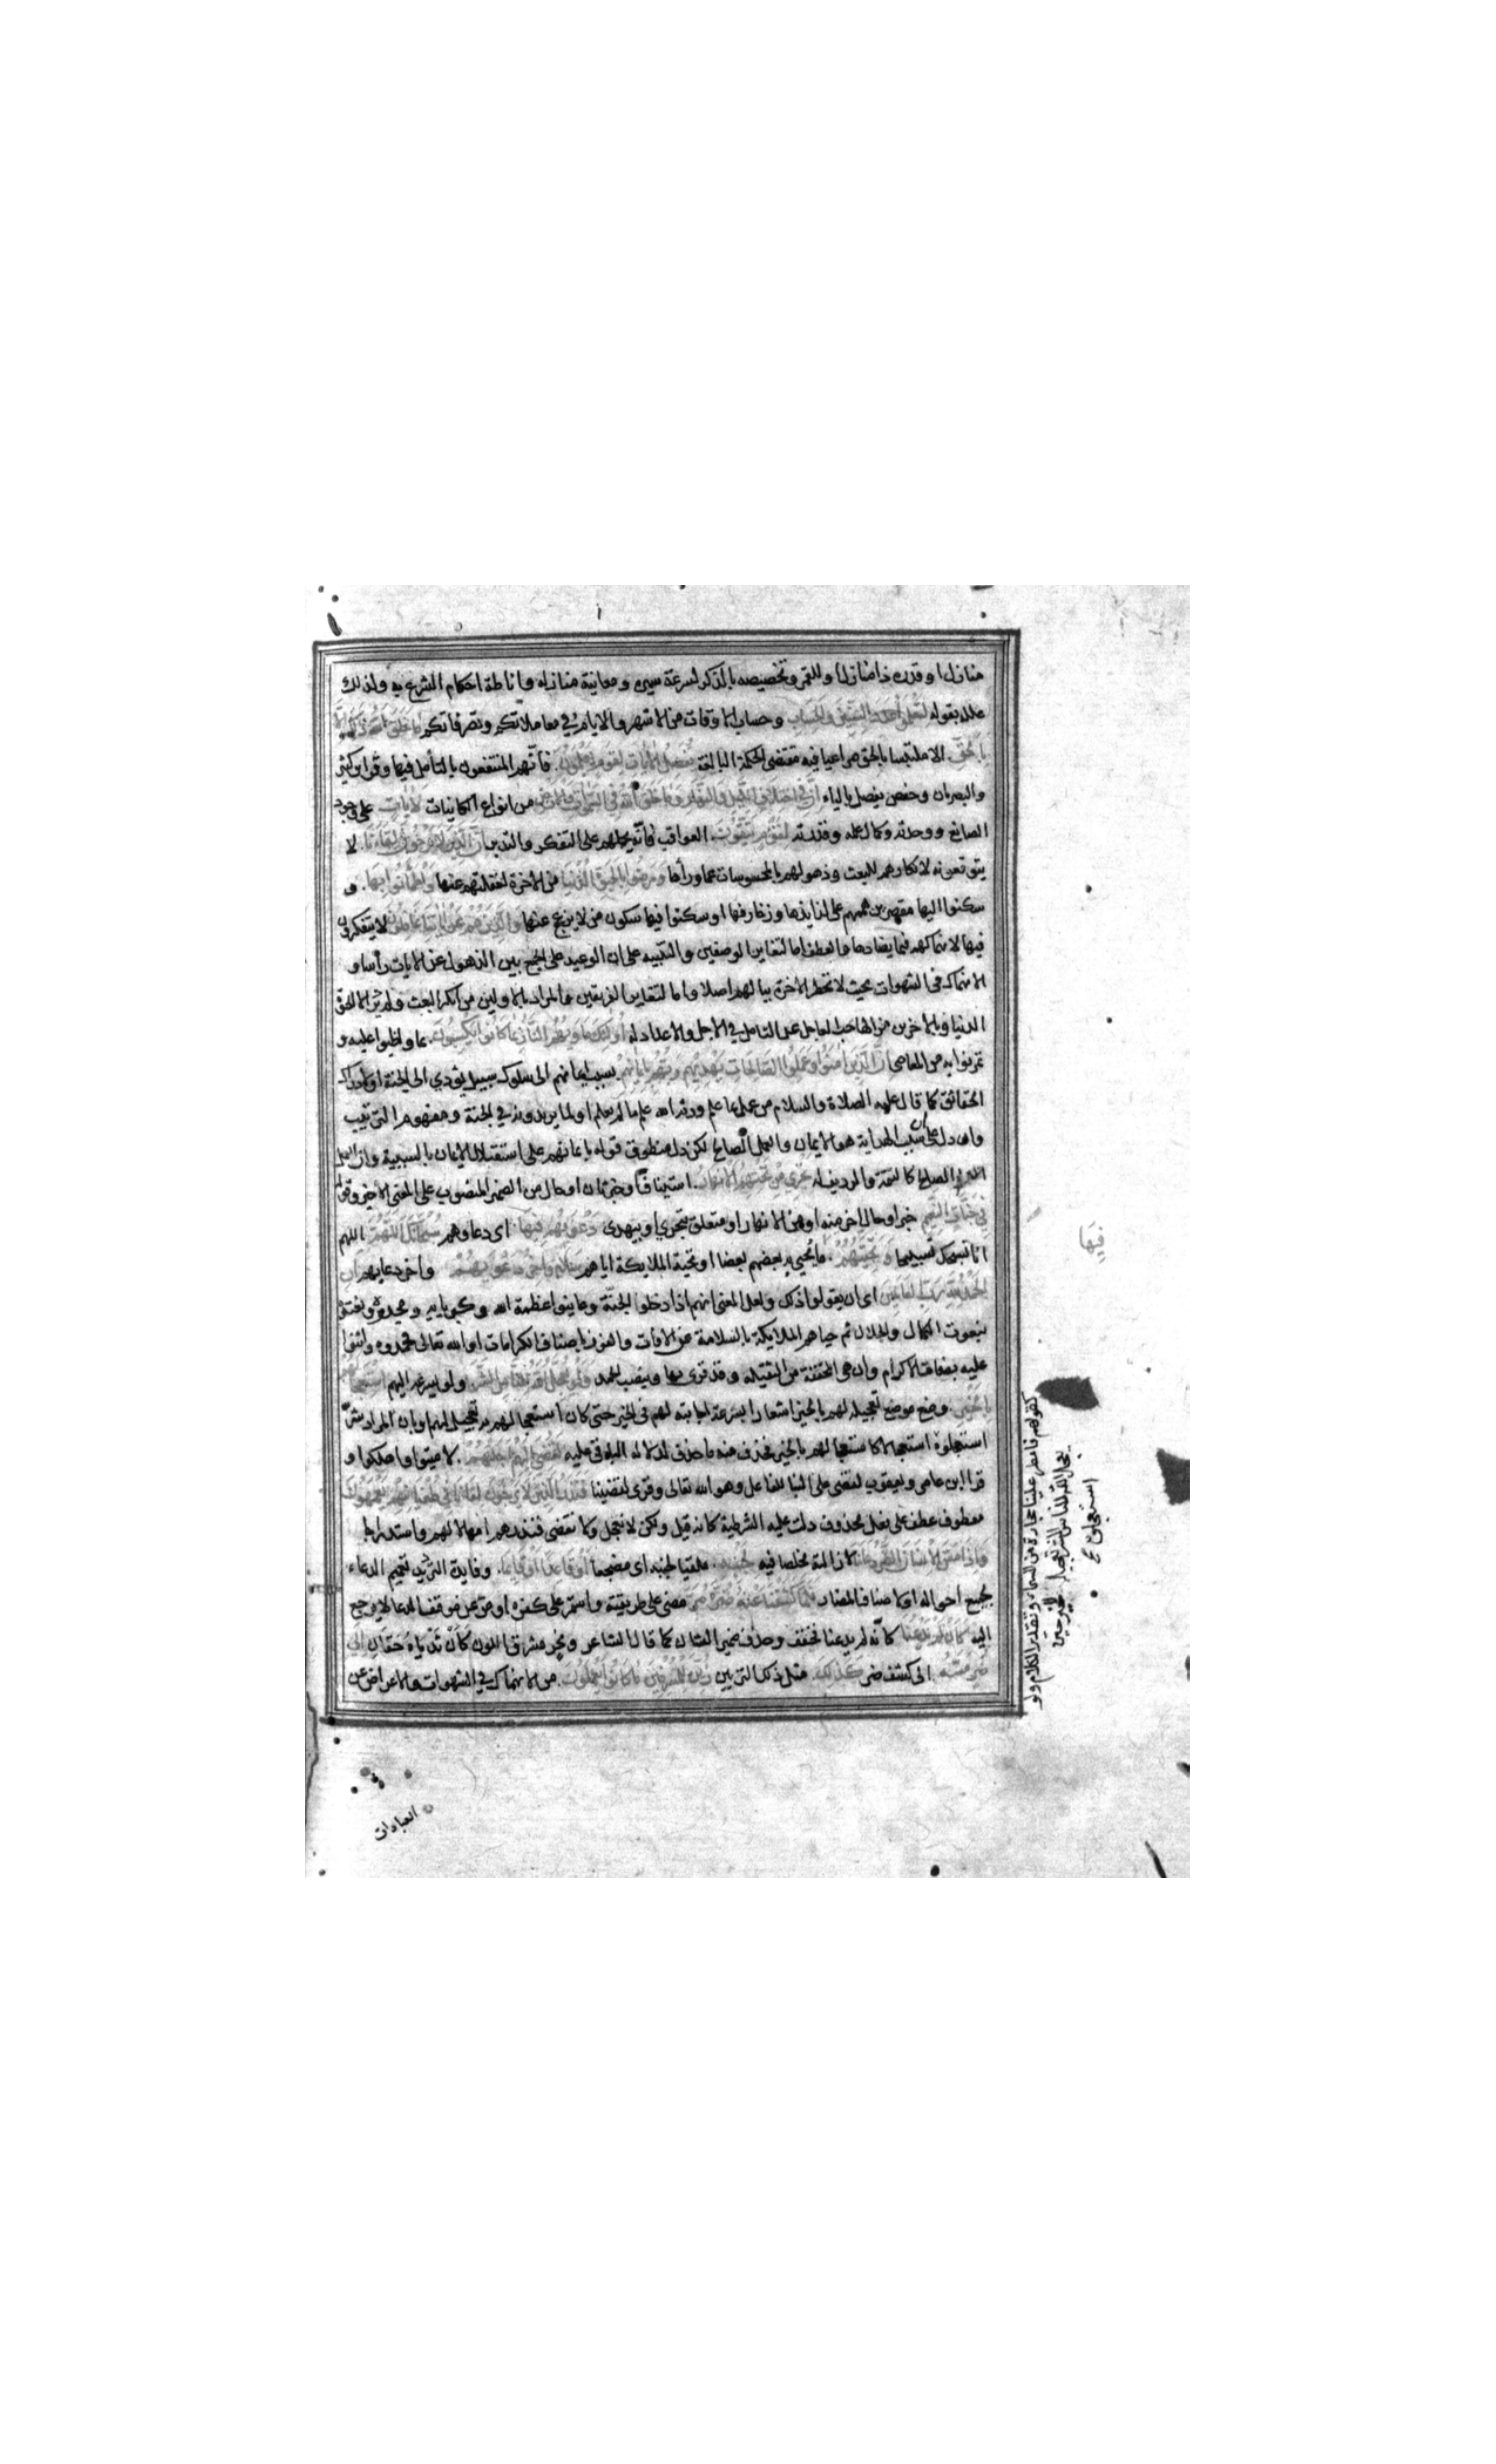 منازل او قدره ذا منازل او للقمر وتخصيصه بالذكر لسرعة سيره ومعاينة منازله واناطة احكام الشرع به ولذلك
علله بقوله لتعلموا عدد السنين والحساب وحساب الاوقات من الاشهر والايام في معاملاتكم وتصرفاتكم ما خلق الله ذلك الا
بالحق الا ملتبسا بالحق مراعيا فيه مقتضى الحكمة البالغة نفصل الايات لقوم يعلمون فانهم المنتفعون بالتأمل فيها وقرا ابن كثير
والبصريان وحفص يفصل بالياء ان في اختلاف الليل والنهار وما خلق الله في السموات والارض من انواع الكاينات لايات على وجود
الصانع ووحدته وكمال علمه وقدرته لقوم يتقون العواقب فانه يحملهم على التفكر والتدبر ان الذين لا يرجون لقاءنا لا
يتوقعونه لانكارهم للبعث وذهولهم بالمحسوسات عما ورأها ورضوا بالحيوة الدنيا من الاخرة لغفلتهم عنها واطمأنوا بها و
سكنوا اليها مقصرين هممهم على لذايذها وزخارفها او سكنوا فيها سكون من لا ينزعج عنها والذين هم عن اياتنا غافلون لا يتفكرون
فيها لانهماكهم فيما يضادها والعطف اما لتغاير الوصفين والتنبيه على ان الوعيد على الجمع بين الذهول عن الايات رأسا و
الانهماك في الشهوات بحيث لا تخطر الاخرة ببالهم اصلا واما لتغاير الفريقين والمراد بالاولين من انكر البعث ولم ير الا الحيوة
الدنيا وبالاخرين من الهاه حب العاجل عن التامل في الاجل والاعداد له اولئك ماويهم النار بما كانوا يكسبون بما واظبوا عليه و
تمرنوا به من المعاصي ان الذين امنوا وعملوا الصالحات يهديهم ربهم بايمانهم بسبب ايمانهم الى سلوك سبيل يؤدي الى الجنة او لادراك
الحقائق كما قال عليه الصلاة والسلام من عمل بما علم ورثه الله علم ما لم يعلم او لما يريدونه في الجنة ومفهوم الترتيب
وان دل على ان سبب الهداية هو الايمان والعمل الصالح لكن دل منطوق قوله بايمانهم على استقلال الايمان بالسببية وان العمل
الصالح كالتتمة والرديف له تجري من تحتهم الانهار استيناف او خبر ثان او حال من الضمير المنصوب على المعنى الاخير وقوله
في جنات النعيم خبر او حال اخر منه او من الانهار او متعلق بتجري او بيهدي دعويهم فيها اي دعاؤهم سبحانك اللهم اللهم
انا نسبحك تسبيحا وتحيتهم ما يحيي به بعضهم بعضا او تحية الملايكة اياهم سلام واخر دعويهم واخر دعايهم ان
الحمد لله رب العالمين اى ان يقولوا ذلك ولعل المعنى انهم اذا دخلوا الجنة وعاينوا عظمة الله وكبريايه ومجدوه ونعتوه
بنعوت الكمال والجلال ثم حياهم الملايكة بالسلامة عن الافات والفوز باصناف الكرامات او الله تعالى فحمدوه واثنوا
عليه بصفات الاكرام وان هي المخففة من الثقيلة وقد قرى بها وبنصب الحمد ولو يعجل الله للناس الشر ولو يسرعه اليهم استعجالهم
بالخير وضع موضع تعجيله لهم بالخير اشعارا بسرعة اجابته لهم في الخير حتى كان استعجالهم به تعجيل لهم او بان المراد شر
استعجلوه استعجالا كاستعجالهم بالخير فحذف منه ما حذف لدلالة الباقي عليه لقضي اليهم اجلهم لاميتوا واهلكوا و
قرا ابن عامر ويعقوب لقضى على البنا للفاعل وهو الله تعالى وقرى لقضينا فنذر الذين لا يرجون لقاءنا في طغيانهم يعمهون
معطوف عطف على فعل محذوف دلت عليه الشرطية كانه قيل ولكن لا نعجل ولا نقضي فنذرهم امهالا لهم واستدراجا
واذا مس الانسان الضر دعانا لازالته مخلصا فيه لجنبه ملقيا لجنبه اى مضجعا او قاعدا او قايما وفايدة الترديد تعميم الدعاء
بجميع احواله او لاصناف المضار فلما كشفنا عنه ضره مر مضى على طريقته واستمر على كفره او مر عن موقف الدعا لا يرجع
اليه كان لم يدعنا كانه لم يدعنا فخفف وحذف ضمير الشان كما قال الشاعر ونحر مشرق اللون كان ثدياه حقان الى
ضر مسه الى كشف ضر كذلك مثل ذلك التزيين زين للمسرفين ما كانوا يعملون من الانهماك في الشهوات والاعراض عن
العبادات
فيها
كقولهم فامطر علينا حجارة من السماء وتقدير الكلام ولو
يعجل الله للناس الشر تعجيله للخير حين
استعجلوه